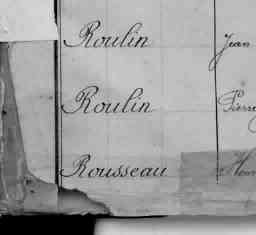 Roulin Jean
Roulin Pierre
Rousseau